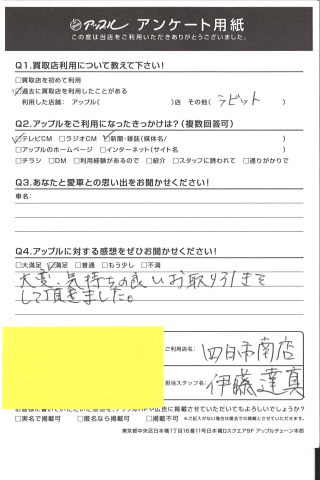 アップル アンケート用紙
この度は当店をご利用いただきありがとうございました。
Q1.買取店利用について教えて下さい!
□買取店を初めて利用
☑過去に買取店を利用したことがある
利用した店舗: アップル( )店 その他( ラビット )
Q2.アップルをご利用になったきっかけは?(複数回答可)
☑テレビCM □ラジオCM ☑新聞・雑誌(媒体名/ )
□アップルのホームページ □インターネット(サイト名 )
□チラシ □DM □利用経験があるので □紹介 □スタッフに誘われて □通りがかりで
Q3.あなたと愛車との思い出をお聞かせください!
車名:
Q4.アップルに対する感想をぜひお聞かせください!
□大満足 ☑満足 □普通 □もう少し □不満
大変、気持ちの良いお取り引きを
して頂きました。
ご利用店名: 四日市南店
担当スタッフ名: 伊藤達真
お客様に書いていただいた感想を、アップルHPや広告に掲載させていただいてもよろしいでしょうか?
□実名で掲載可 □匿名なら掲載可 □掲載不可 ※ご記入がない場合は匿名での掲載とさせていただきます。
東京都中央区日本橋1丁目16番11号日本橋Dスクエア9F アップルチェーン本部